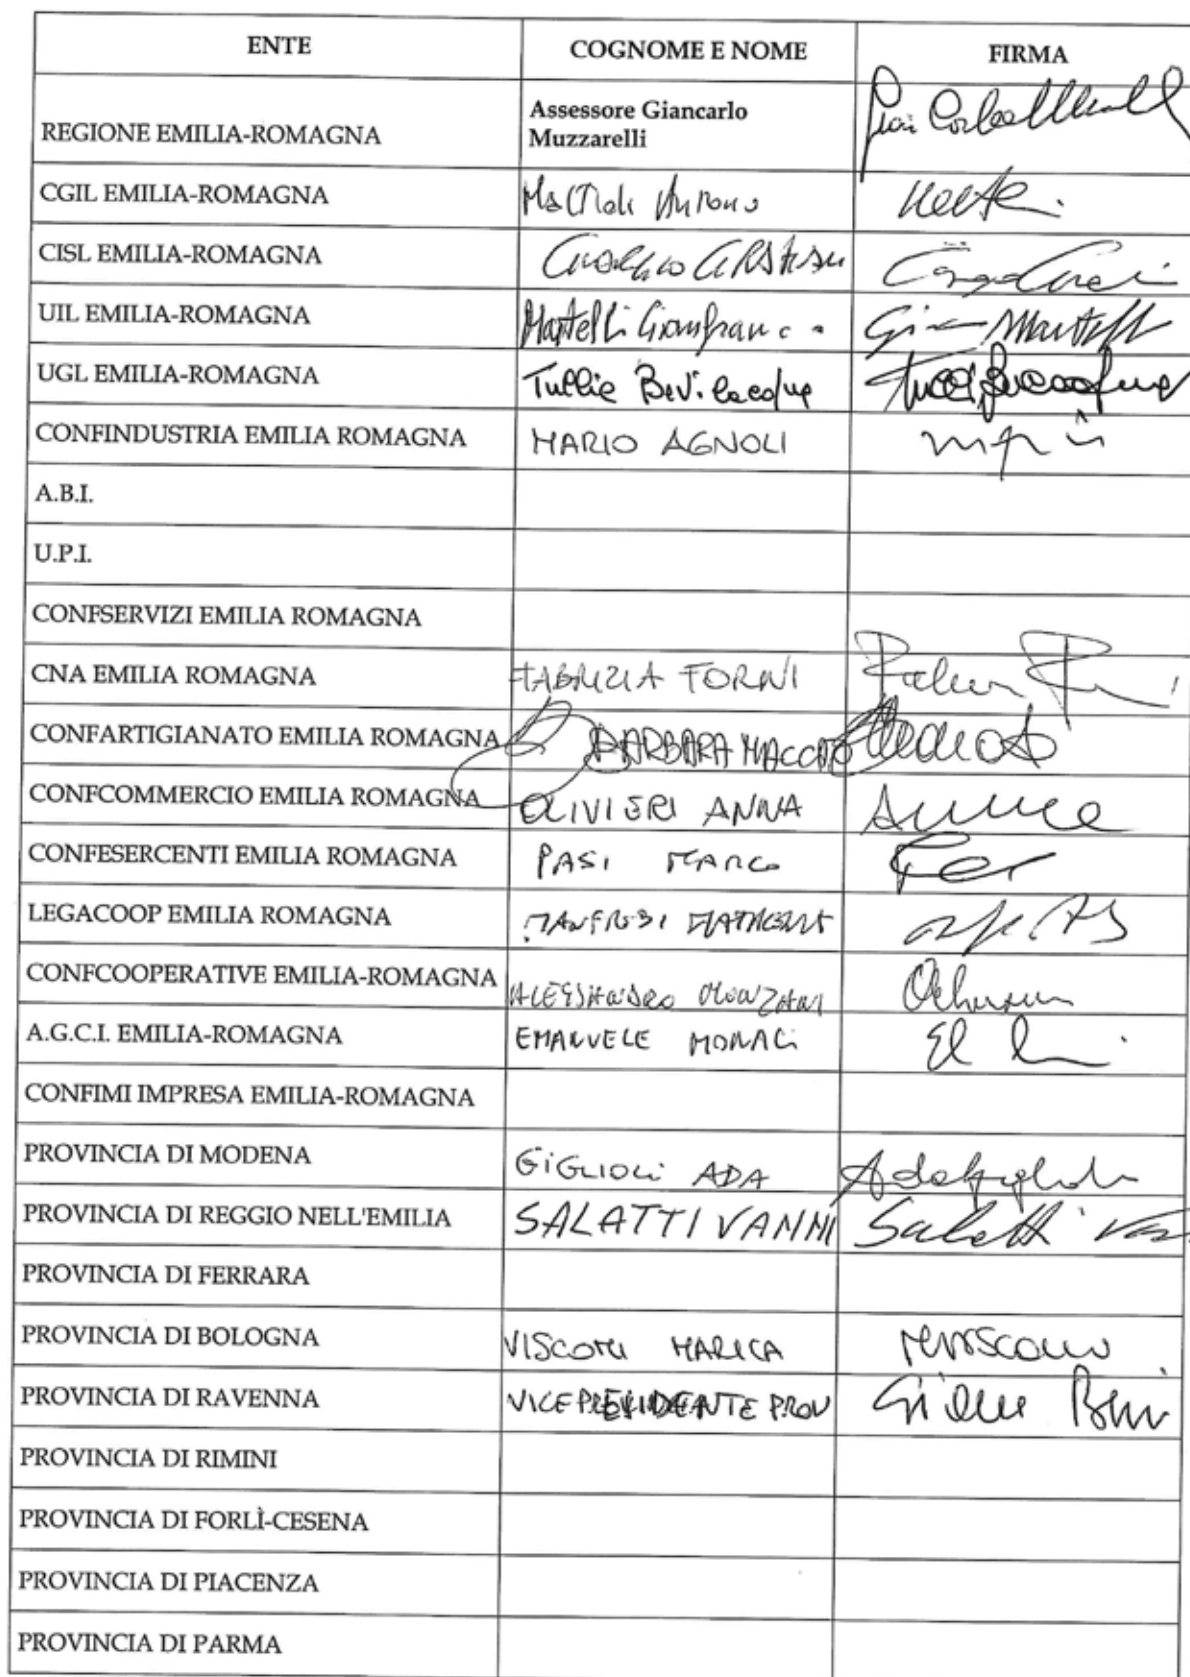 ENTE COGNOME E NOME FIRMA
REGIONE EMILIA-ROMAGNA Assessore Giancarlo
Muzzarelli
CGIL EMILIA-ROMAGNA
CISL EMILIA-ROMAGNA
UIL EMILIA-ROMAGNA Martelli Gianfranco Martelli
UGL EMILIA-ROMAGNA Tullio Bevilacqua
CONFINDUSTRIA EMILIA ROMAGNA MARIO AGNOLI
A.B.I.
U.P.I.
CONFSERVIZI EMILIA ROMAGNA
CNA EMILIA ROMAGNA FABRIZIA FORNI
CONFARTIGIANATO EMILIA ROMAGNA BARBARA MACCATO
CONFCOMMERCIO EMILIA ROMAGNA OLIVIERI ANNA
CONFESERCENTI EMILIA ROMAGNA PASI MARCO
LEGACOOP EMILIA ROMAGNA
CONFCOOPERATIVE EMILIA-ROMAGNA ALESSANDRO MONZANI
A.G.C.I. EMILIA-ROMAGNA EMANUELE MONACI
CONFIMI IMPRESA EMILIA-ROMAGNA
PROVINCIA DI MODENA GIGLIOLI ADA
PROVINCIA DI REGGIO NELL'EMILIA SALATTI VANNI Salatti
PROVINCIA DI FERRARA
PROVINCIA DI BOLOGNA MARICA
PROVINCIA DI RAVENNA VICEPRESIDENTE PROV
PROVINCIA DI RIMINI
PROVINCIA DI FORLÌ-CESENA
PROVINCIA DI PIACENZA
PROVINCIA DI PARMA